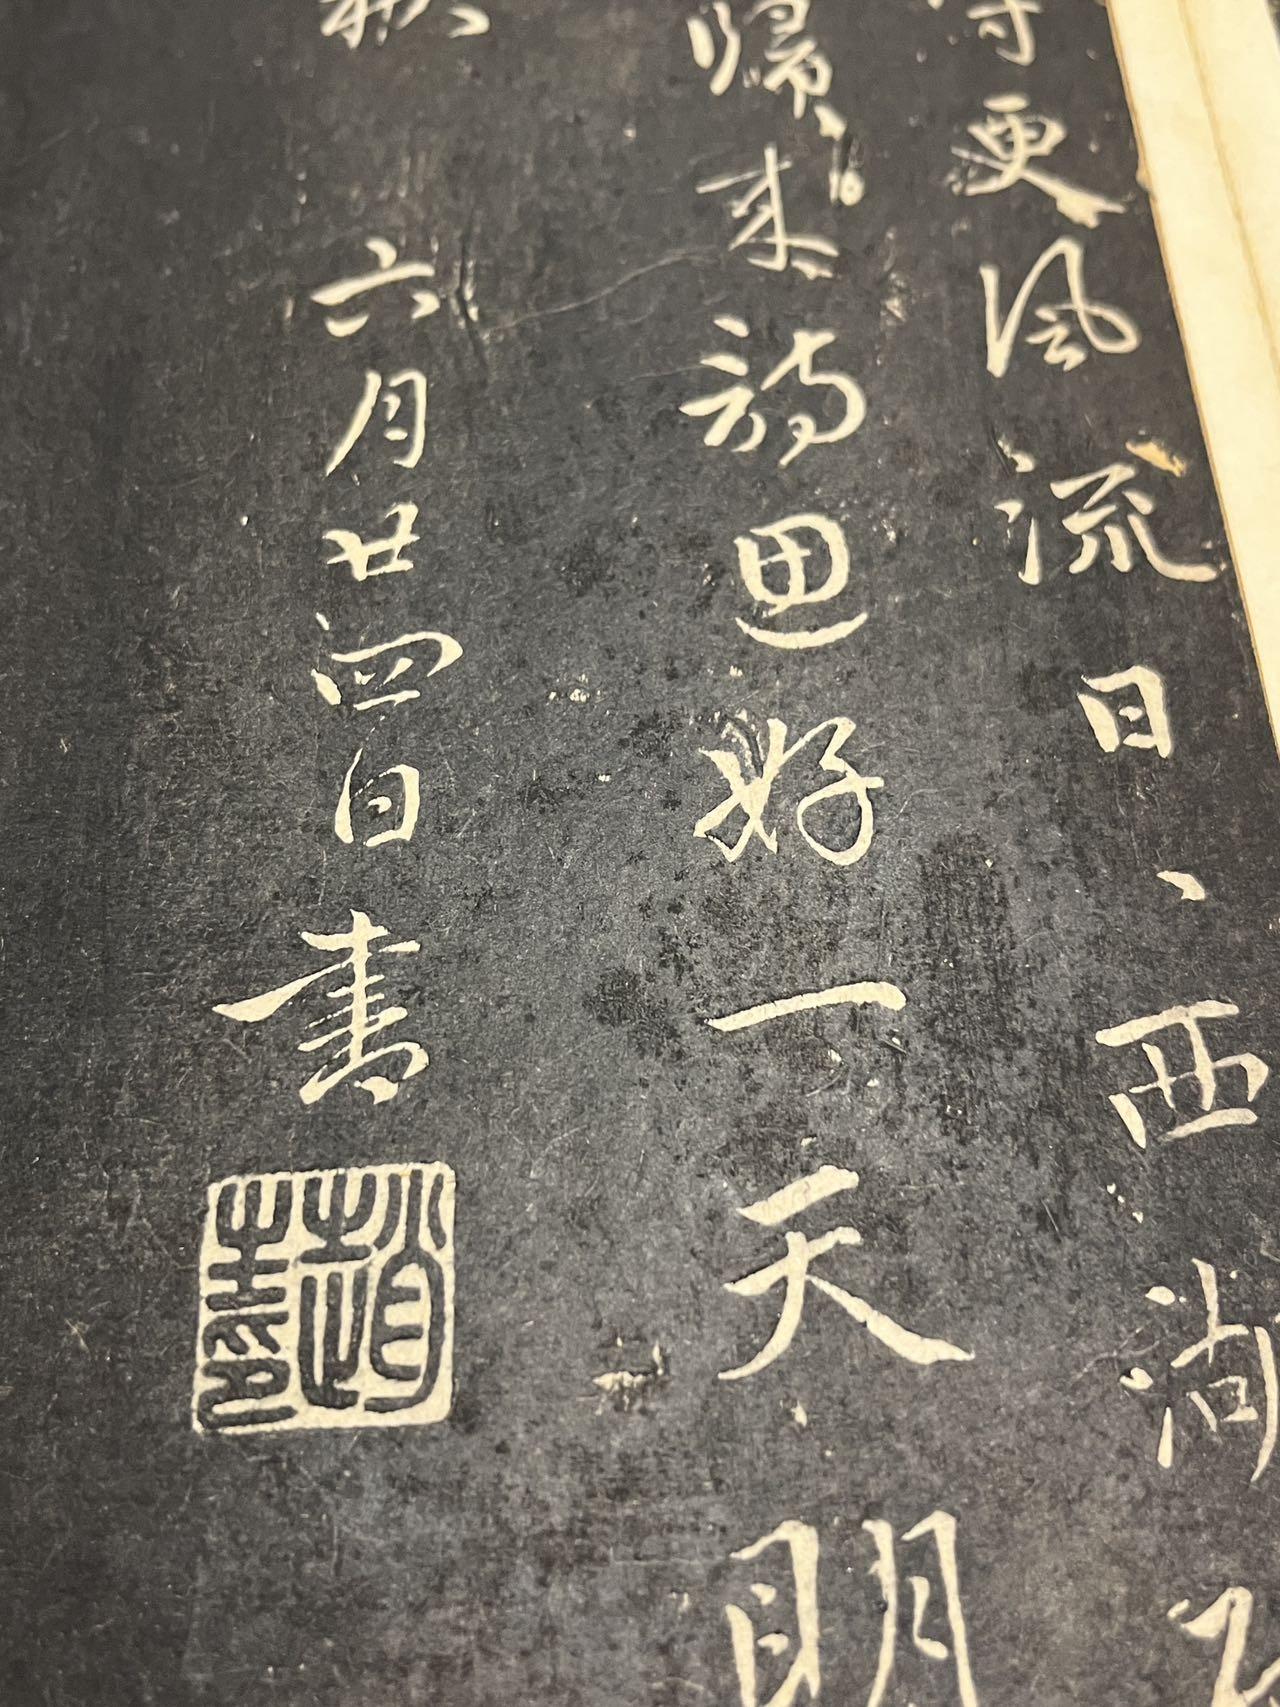 更風流日、西湖
歸來詩思好一天明
六月廿四日書
趙